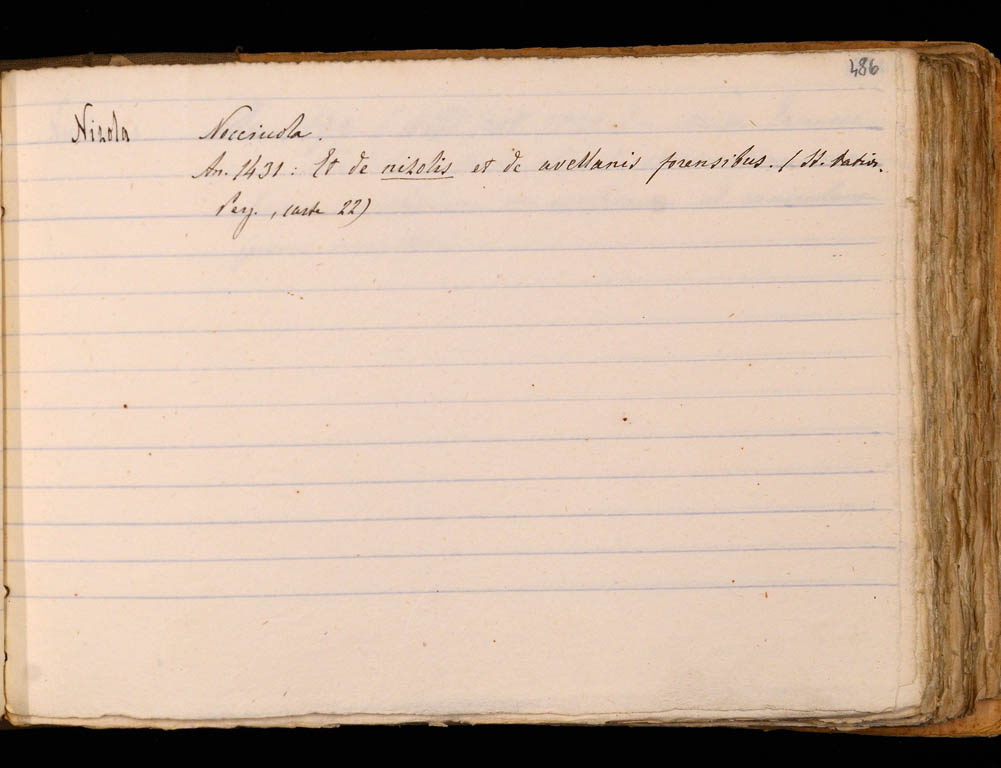 486
Nizola Nocciuola.
An. 1431: Et de nizolis et de avellanis prensibus. (St. Datior.
Reg., carte 22)